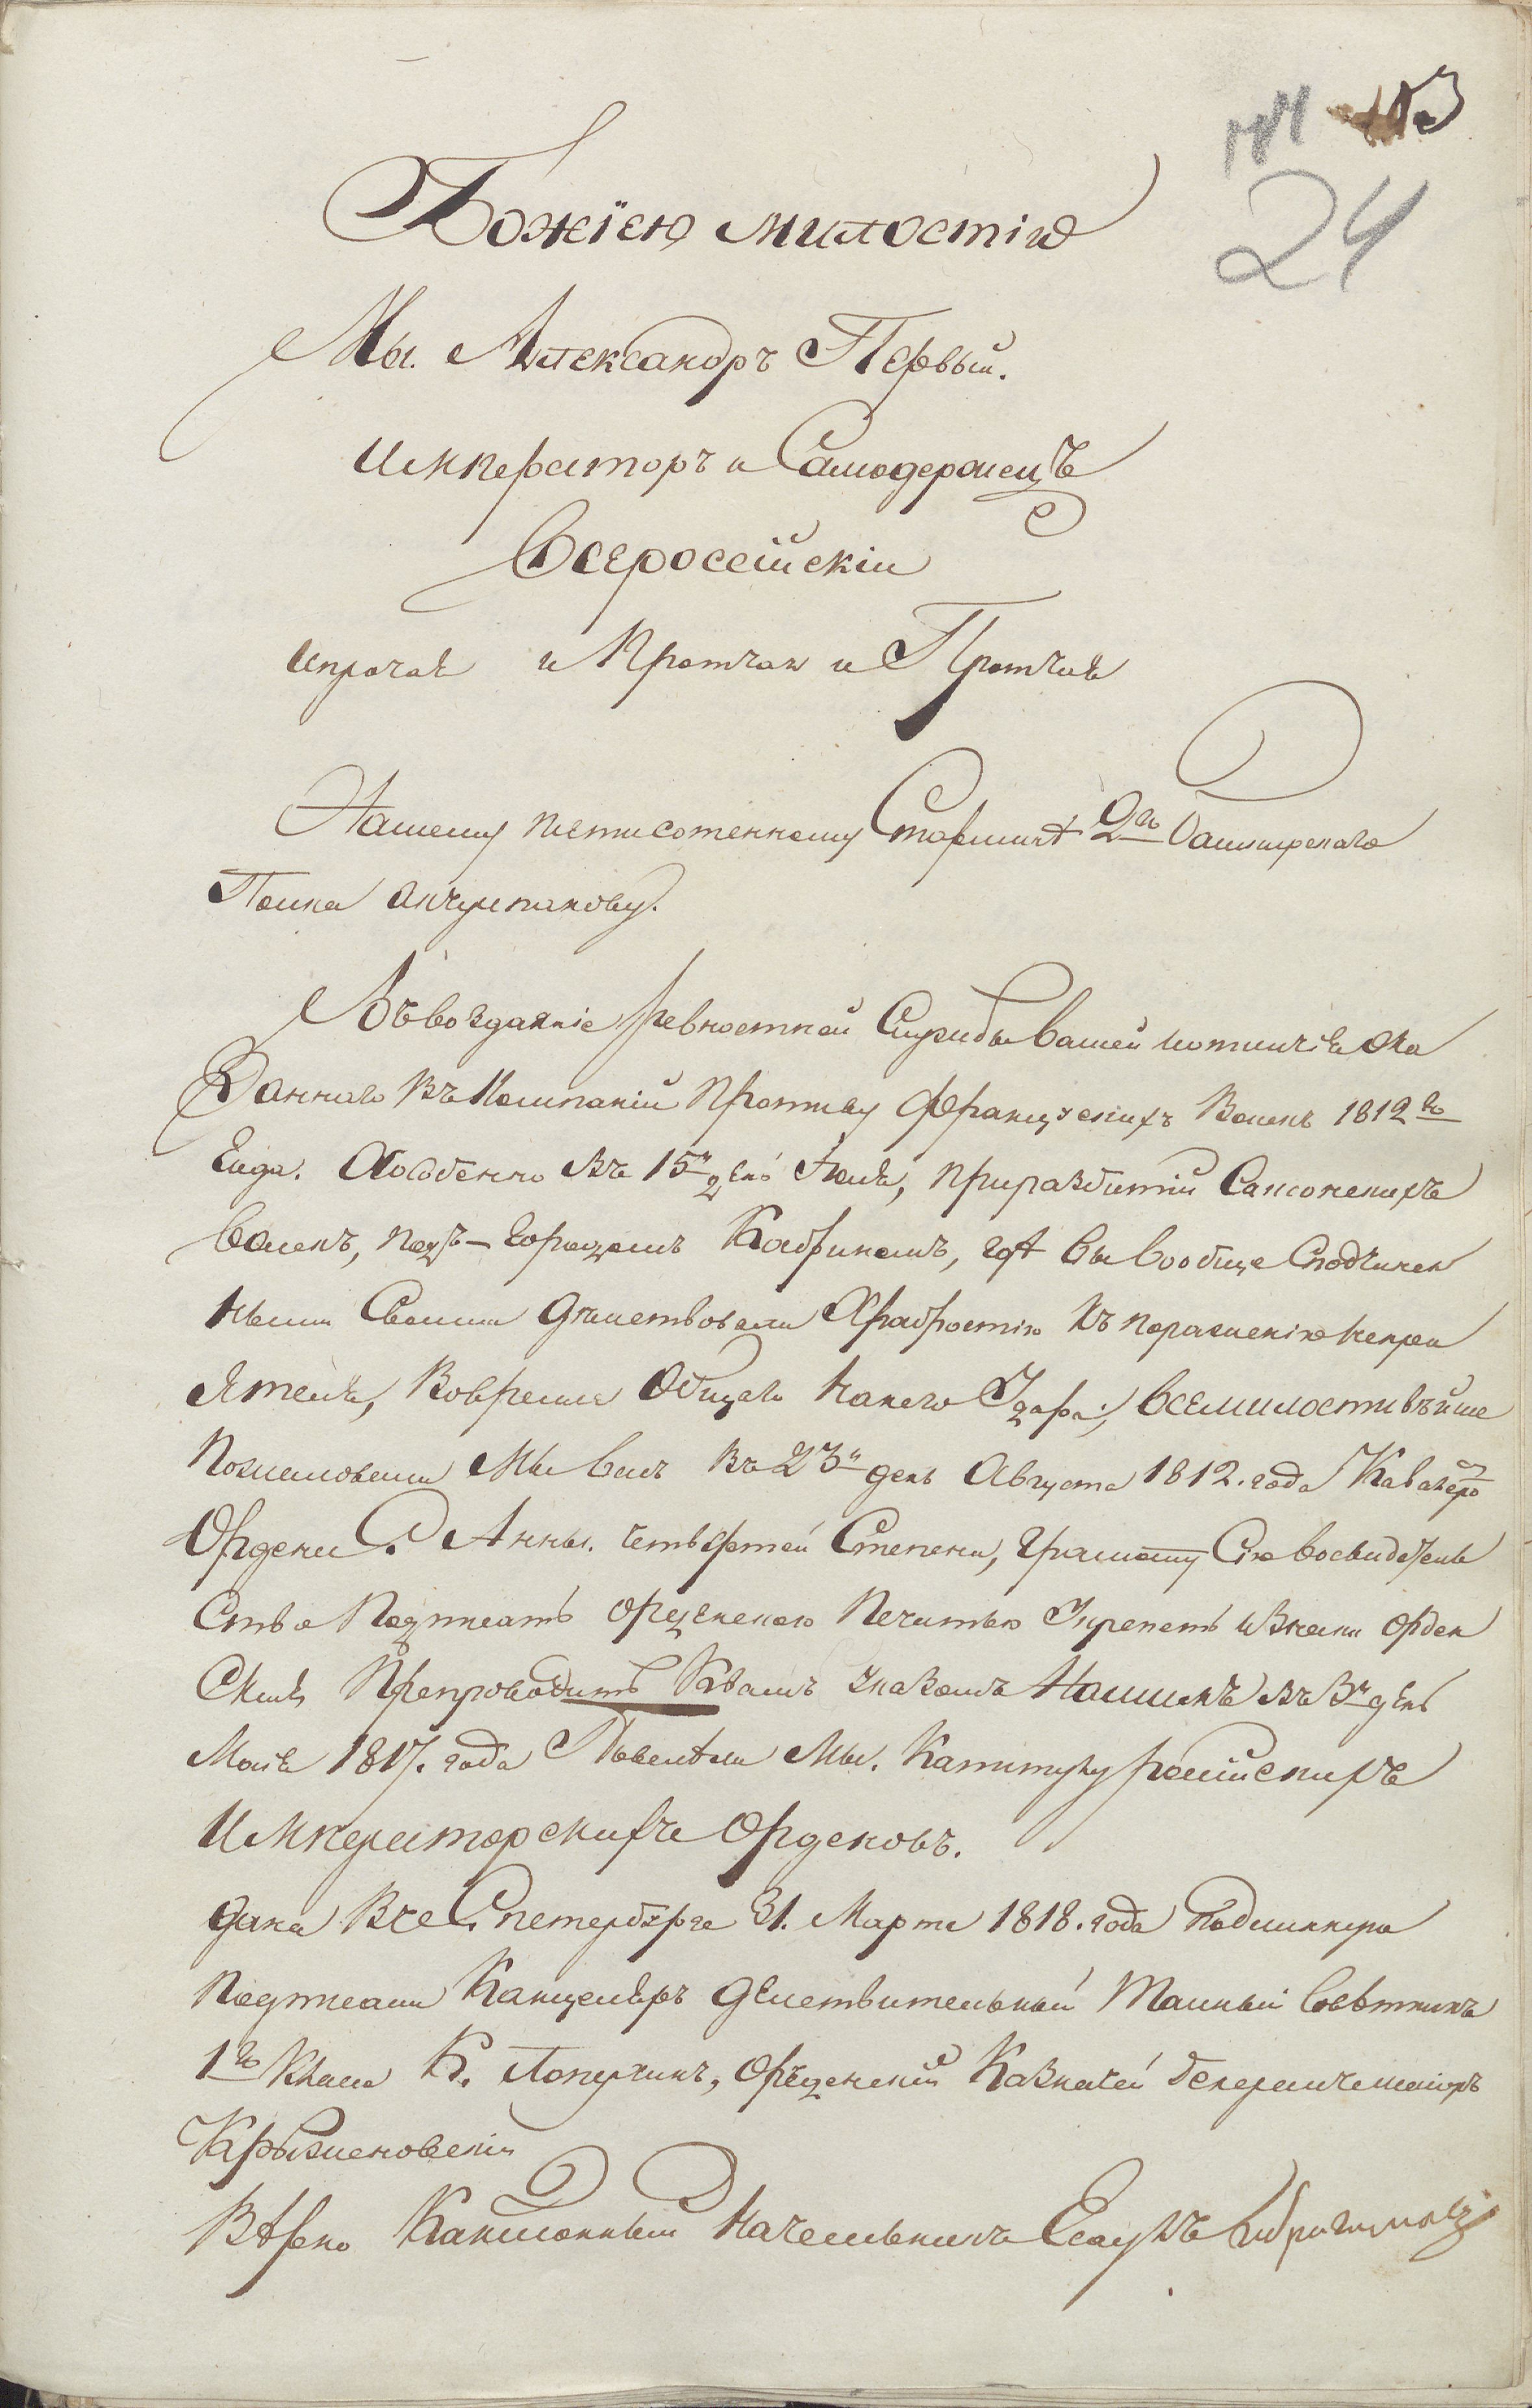 24
Божіею милостію
Мы Александръ Первый.
Императоръ и Самодержецъ
Всеросейскій
ипрочая и Протчая и Протчая
Нашему пятисотенному Старшинѣ 2го Башкирскаго
Полка Акчулпанову.
Въвоздаяніе ревностной Службы вашей иотличія ока
Заннаго въ Компаніи Противу Французскихъ Воискъ 1812го
Года. Аособенно въ 15й день Іюля, приразбитіи Саксонскихъ
воискъ, подъ-Городомъ Кобриномъ, гдѣ вы вообще Сподчинен
ными Своими дѣиствовали Храбростію къ пораженію непрі
ятеля, Вовремя Общаго Удара, всемилостивѣйше
Пожаловали Мы васъ въ 23й день Августа 1812. года Кавалеро
Ордена С. Анны. четвертой Степени, Грамоту Сію восвидетель
Ство Подписать орденскою Печатью Укрепить иЗнаки орден
Скія Препроводить Квамъ указомъ Нашимъ въ 3й день
Маія 1817. года Повелѣли Мы. Капитулу російскихъ
Императорскихъ Орденовъ.
дана ВъСпетербурге 31. Марта 1818. года
Подписали Канцлеръ деиствительный Тайный Совѣтникъ
1го Класа К. Лопухинъ, Орденскій Казначей Генералъмаіоръ
Крыжановскій
Вѣрно Кантонный Начельникъ Есаулъ Ибрагимовъ